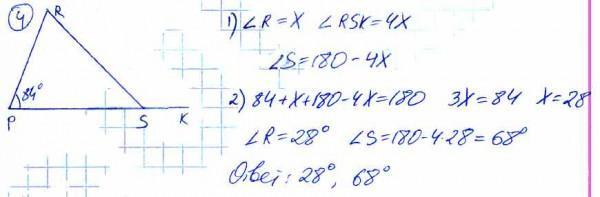 4
R
84°
P S K
1) ∠R = X ∠RSK = 4X
∠S = 180 - 4X
2) 84 + X + 180 - 4X = 180 3X = 84 X = 28
∠R = 28° ∠S = 180 - 4·28 = 68°
Ответ: 28°, 68°